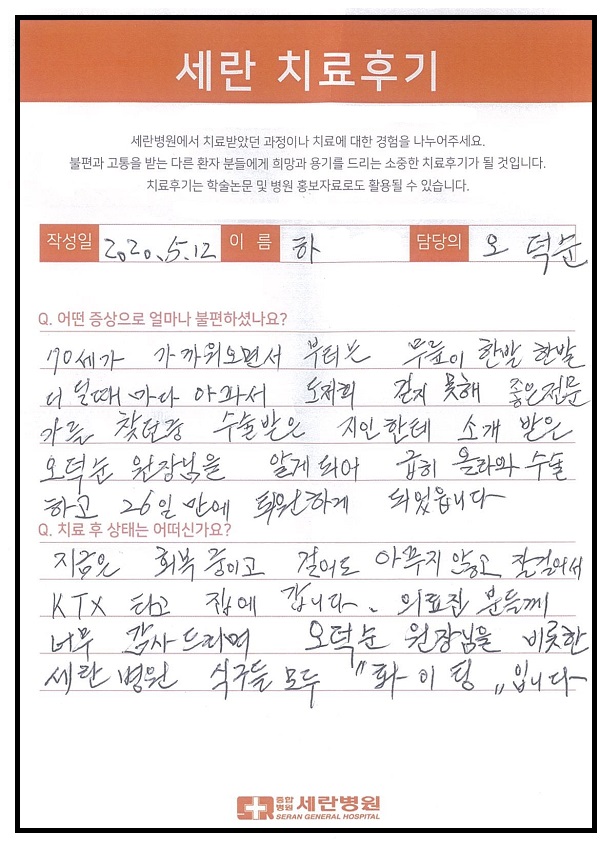 세란 치료후기
세란병원에서 치료받았던 과정이나 치료에 대한 경험을 나누어주세요.
불편과 고통을 받는 다른 환자 분들에게 희망과 용기를 드리는 소중한 치료후기가 될 것입니다.
치료후기는 학술논문 및 병원 홍보자료로도 활용될 수 있습니다.
작성일 2020.5.12 이 름 하 담당의 오 덕순
Q. 어떤 증상으로 얼마나 불편하셨나요?
70세가 가까워오면서 부터는 무릎이 한발 한발
디딜때 마다 아파서 도저히 걷지 못해 좋은전문
가를 찾던중 수술받은 지인한테 소개 받은
오덕순 원장님을 알게되어 급히 올라와 수술
하고 26일만에 퇴원하게 되었읍니다
Q. 치료 후 상태는 어떠신가요?
지금은 회복 중이고 걸어도 아프지 않고 잘걸어서
KTX 타고 집에 갑니다. 의료진 분들께
너무 감사드리며 오덕순 원장님을 비롯한
세란병원 식구들 모두 "화이팅" 입니다
종합병원 세란병원
SERAN GENERAL HOSPITAL